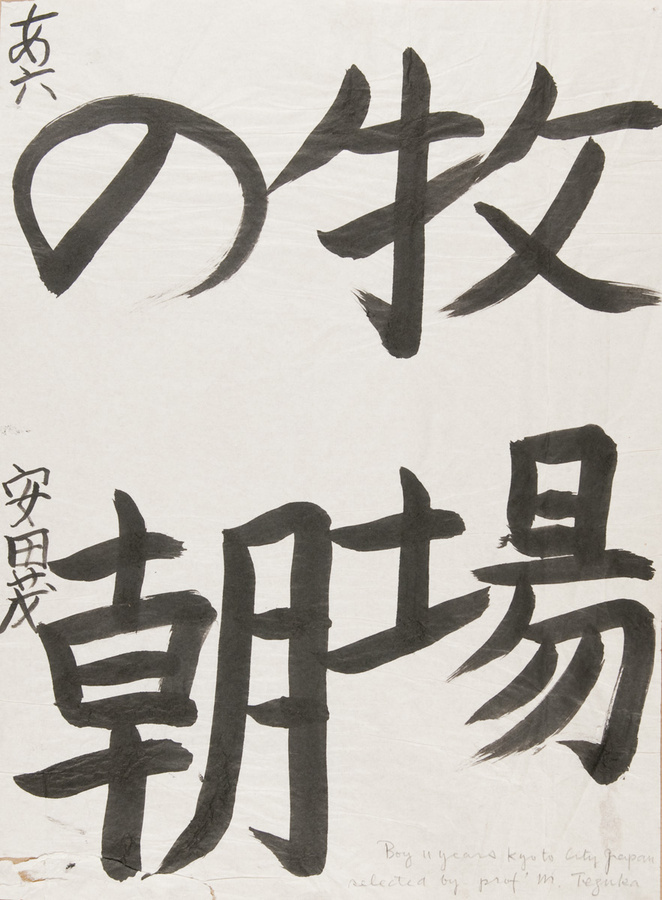 牧場
の朝
あ六
安田茂
Boy 11 years Kyoto City Japan
selected by prof M. Tezuka